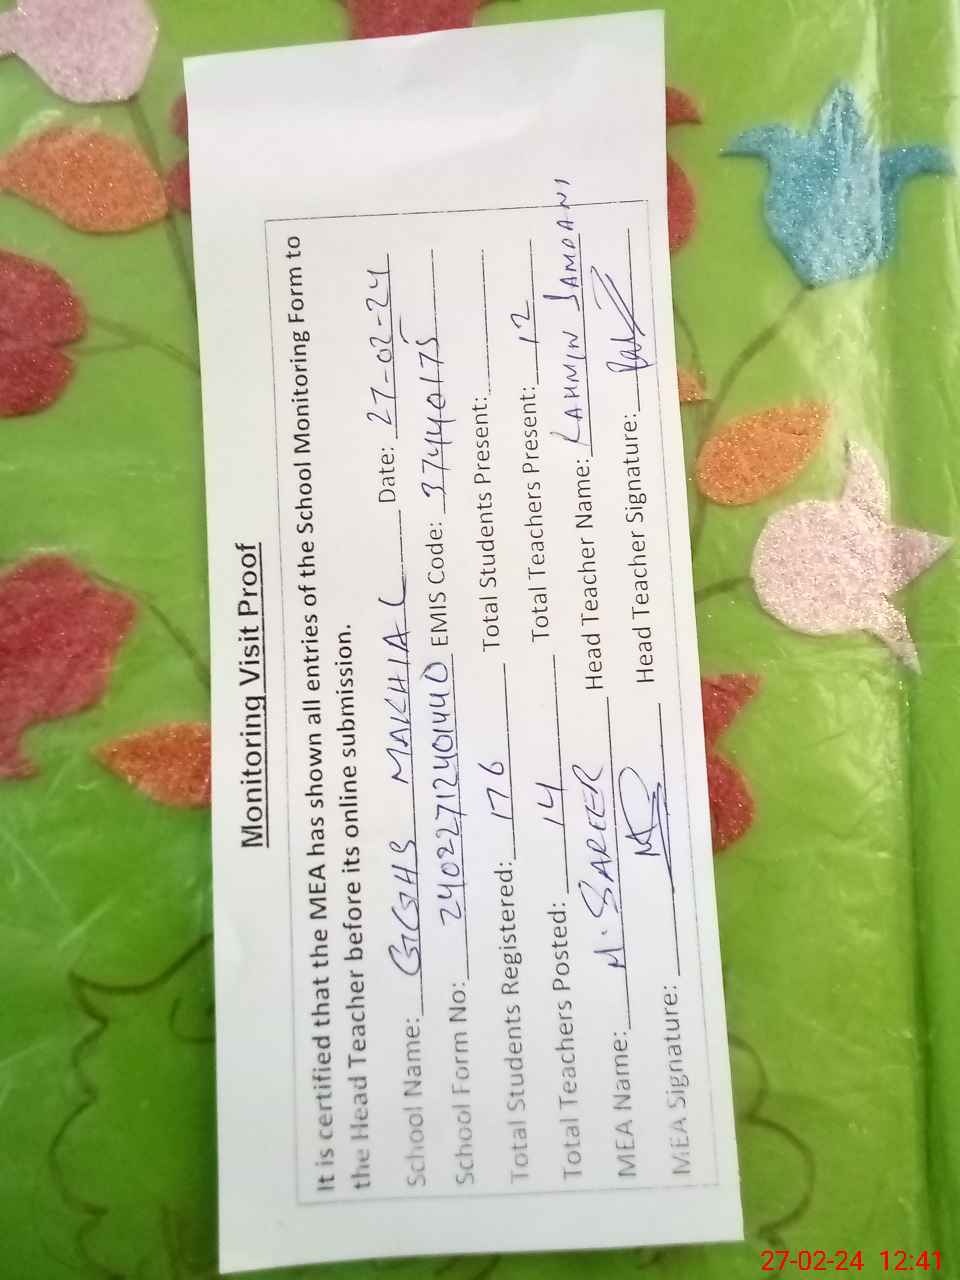 Monitoring Visit Proof
It is certified that the MEA has shown all entries of the School Monitoring Form to
the Head Teacher before its online submission.
School Name: GGHS MAKHIAL Date: 27-02-24
School Form No: 24022712401440 EMIS Code: 37440175
Total Students Registered: 176 Total Students Present:
Total Teachers Posted: 14 Total Teachers Present: 12
MEA Name: M. SAREER Head Teacher Name: SAMDANI
MEA Signature: Head Teacher Signature:
27-02-24 12:41